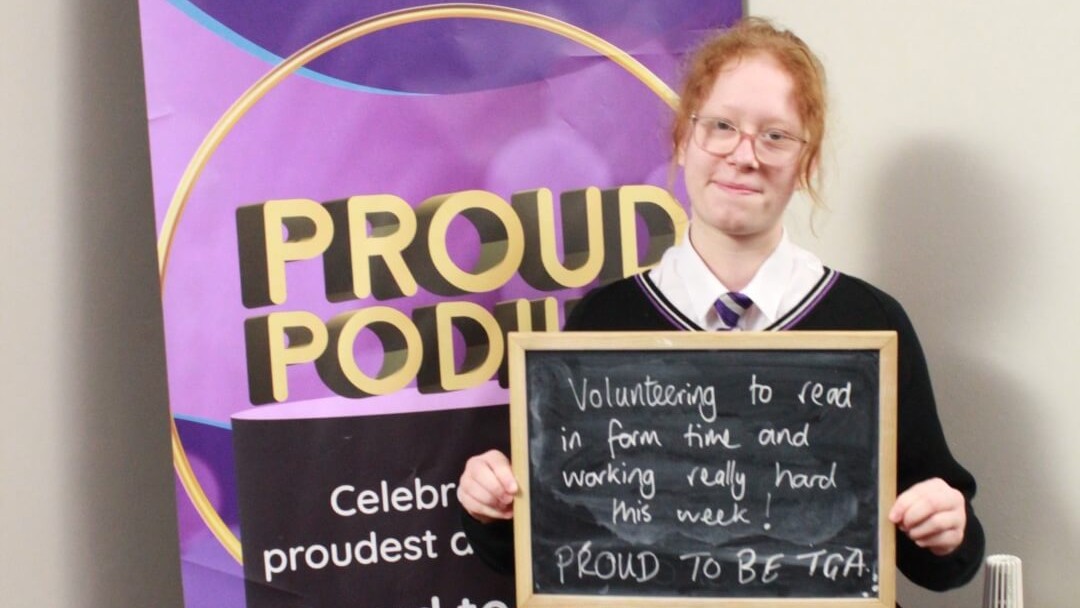 PROUD
PODIU
Celebr
proudest a
Volunteering to read
in form time and
working really hard
this week!
PROUD TO BE TGA.